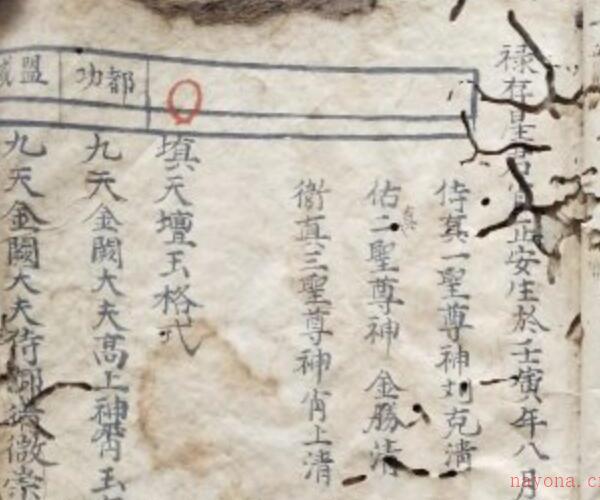 禄存星君 正安生於壬寅年八月
侍真一聖尊神刘克清
佑二聖尊神 金勝清
真
衛真三聖尊神肖上清
填天壇玉格式
都功
九天金闕大夫高上神霄玉
盟威
九天金闕大夫侍御 微崇
nayona.cn